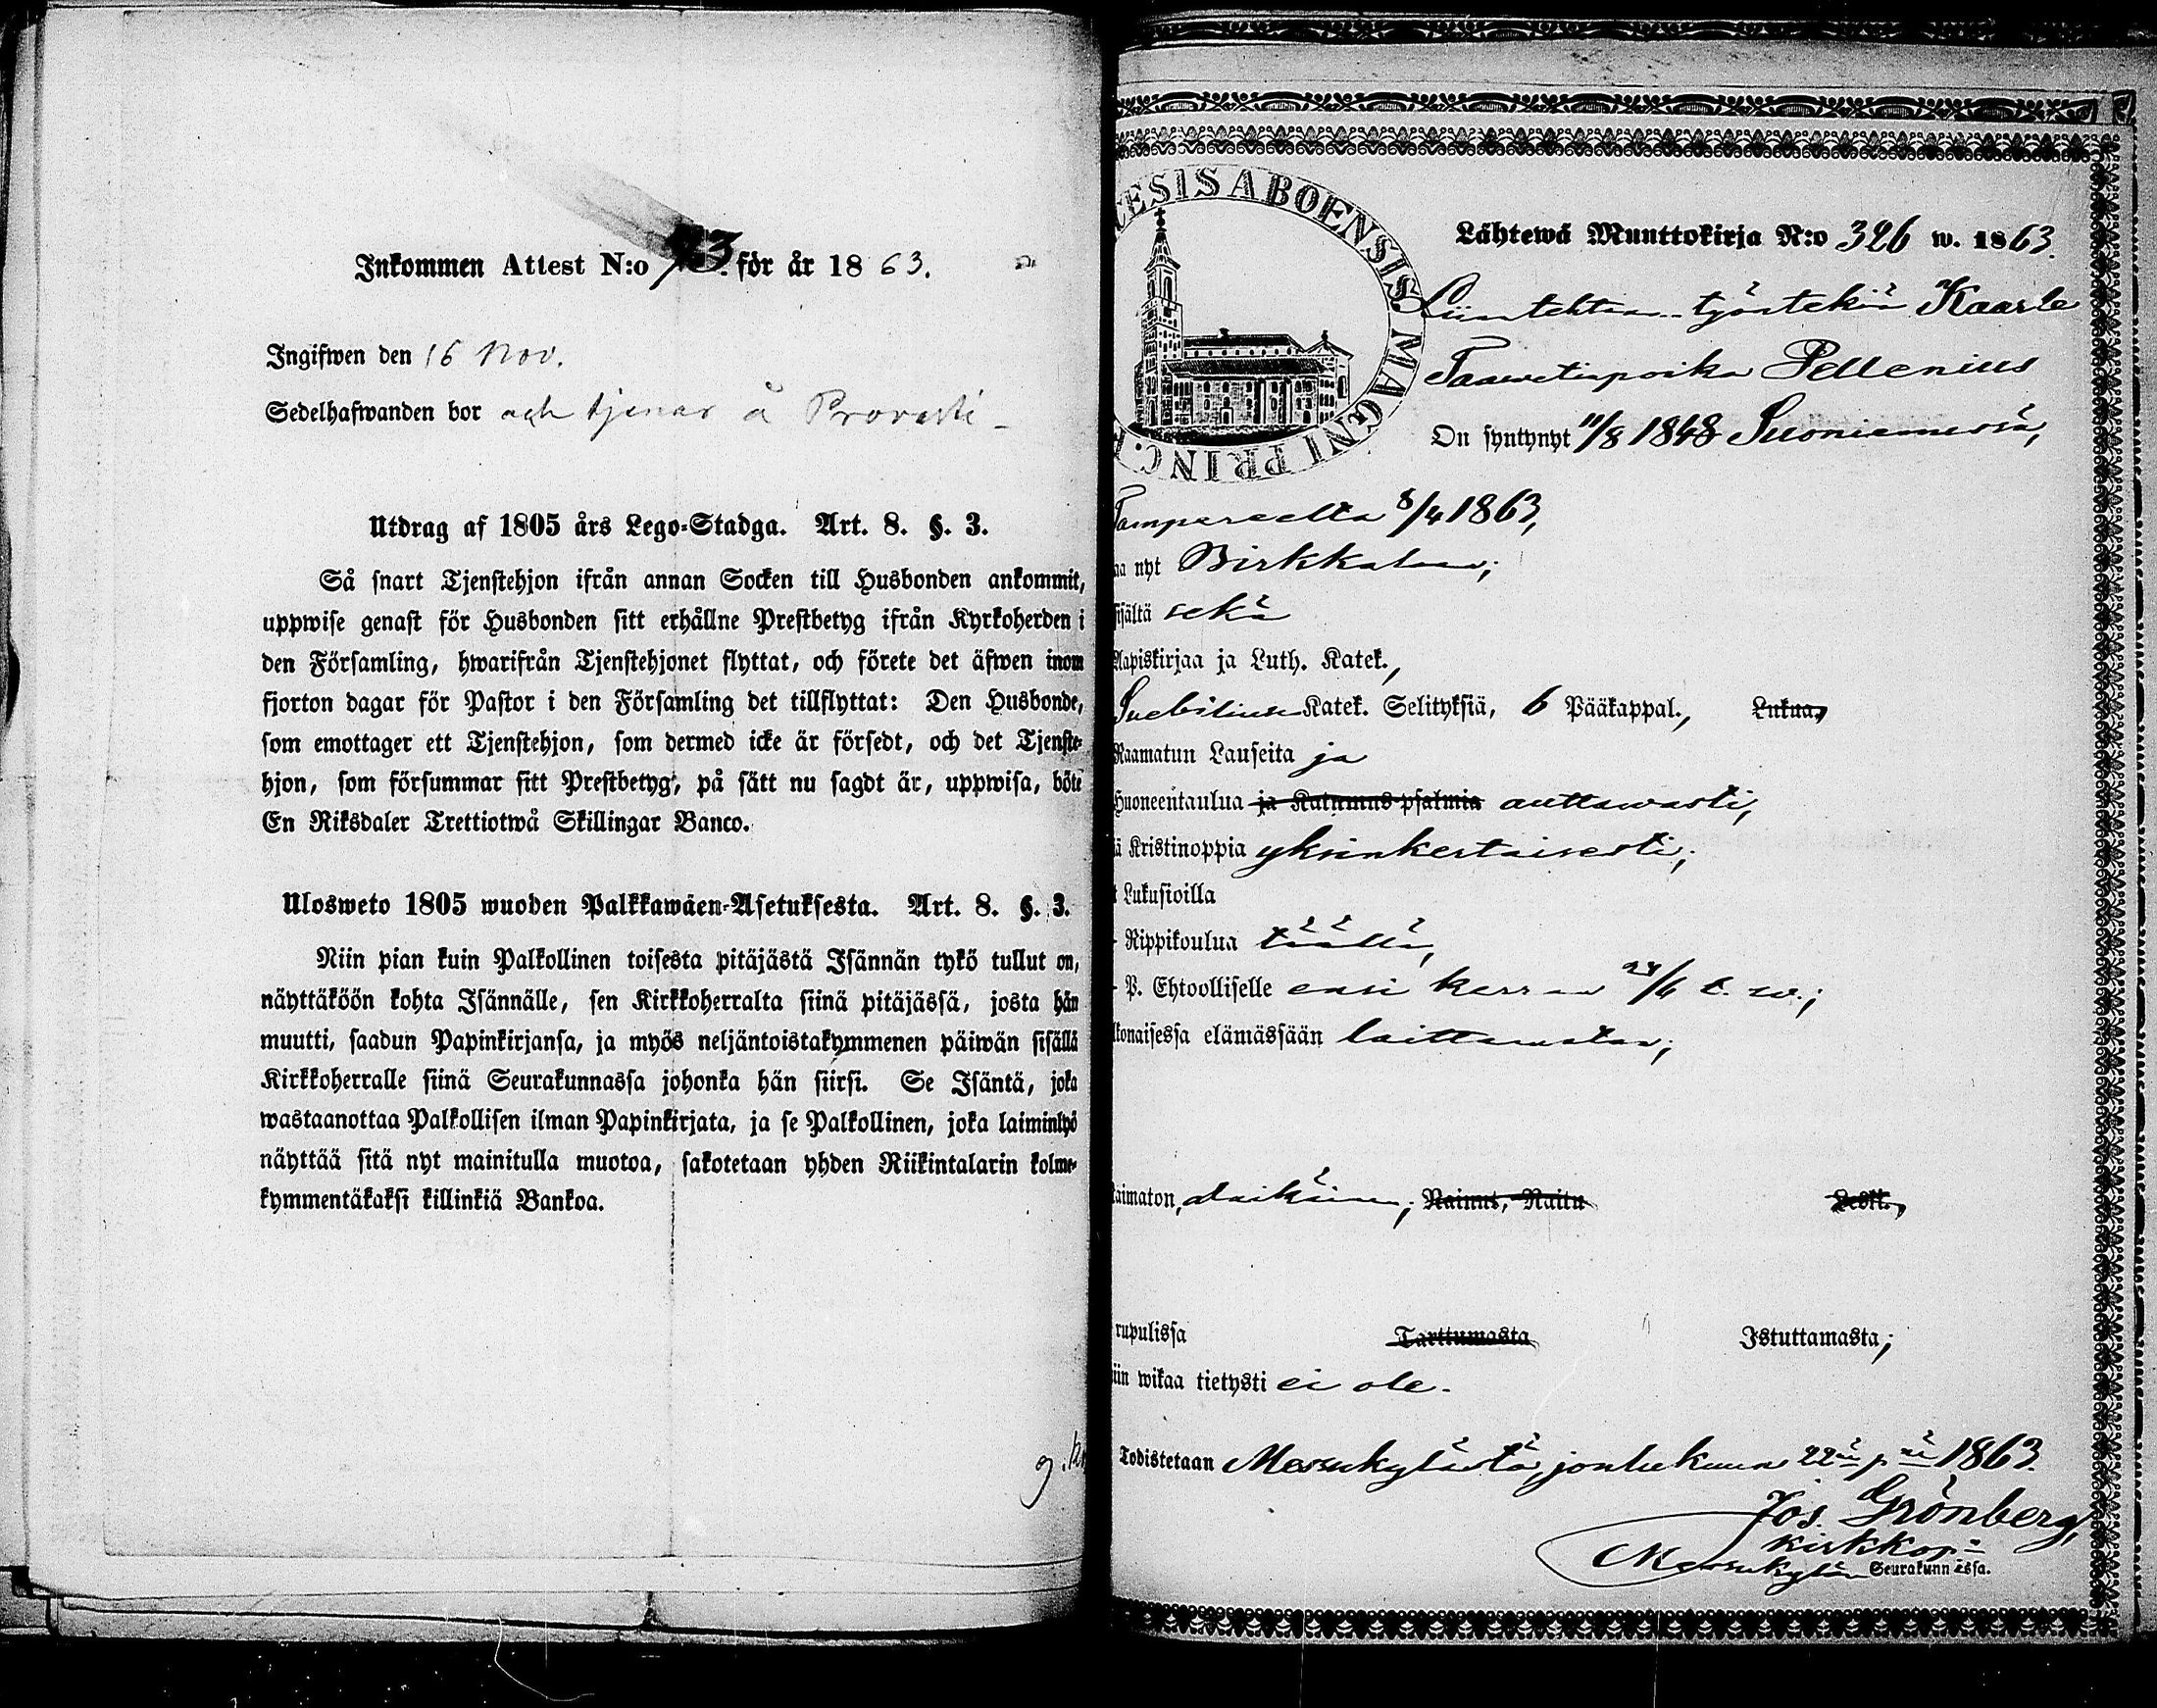 Inkommen Attest N:o 73. för år 1863.
Ingifwen den 16 Nov.
Sedelhafwanden bor och tjenar å Provasti
Utdrag af 1805 års Lego-Stadga. Art. 8. §. 3.
Så snart Tjenstehjon ifrån annan Socken till Husbonden ankommit,
uppwise genast för Husbonden sitt erhållne Prestbetyg ifrån Kyrkoherden i
den Församling, hwarifrån Tjenstehjonet flyttat, och förete det äfwen inom
fjorton dagar för Pastor i den Församling det tillflyttat: Den Husbonde,
som emottager ett Tjenstehjon, som dermed icke är försedt, och det Tjenste-
hjon, som försummar sitt Prestbetyg, på sätt nu sagdt är, uppwisa, böte
En Riksdaler Trettiotwå Skillingar Banco.
Ulosweto 1805 wuoden Palkkawäen-Asetuksesta. Art. 8. §. 3.
Niin pian kuin Palkollinen toisesta pitäjästä Isännän tykö tullut on,
näyttäköön kohta Isännälle, sen Kirkkoherralta siinä pitäjässä, josta hän
muutti, saadun Papinkirjansa, ja myös neljäntoistakymmenen päiwän sisällä
Kirkkoherralle siinä Seurakunnassa johonka hän siirsi. Se Isäntä, joka
wastaanottaa Palkollisen ilman Papinkirjata, ja se Palkollinen, joka laiminlyö
näyttää sitä nyt mainitulla muotoa, sakotetaan yhden Riikintalarin kolme-
kymmentäkaksi killinkiä Bankoa.
ESIS ABOENSIS MAGNI PRINC.
Lähtewä Muuttokirja N:o 326 w. 1863.
työntekiä Kaarle
Taawetinpoika Pellenius
On syntynyt 11/8 1848 Suoniemessä,
Tampereelta 8/4 1863,
aa nyt Birkkalaan;
sisältä sekä
Aapiskirjaa ja Luth. Katek.,
Suebiliuse Katek. Selityksiä, 6 Pääkappal., Lukua,
Raamatun Lauseita ja
Huoneentaulua ja Katumus-psalmia auttawasti,
ä Kristinoppia yksinkertaisesti;
t Lukusioilla
Rippikoulua täällä,
P. Ehtoolliselle ensi kerran 24/6 t. w.;
lkonaisessa elämässään laittamaton;
aimaton, alaikäinen; Nainut, Naitu Leski,
rupulissa Tarttumasta Istuttamasta;
iin wikaa tietysti ei ole.
Todistetaan Messukylästä, joulukuun 22nä p:nä 1863.
Jos. Grönberg,
kirkkop:
Messukylän Seurakunnassa.